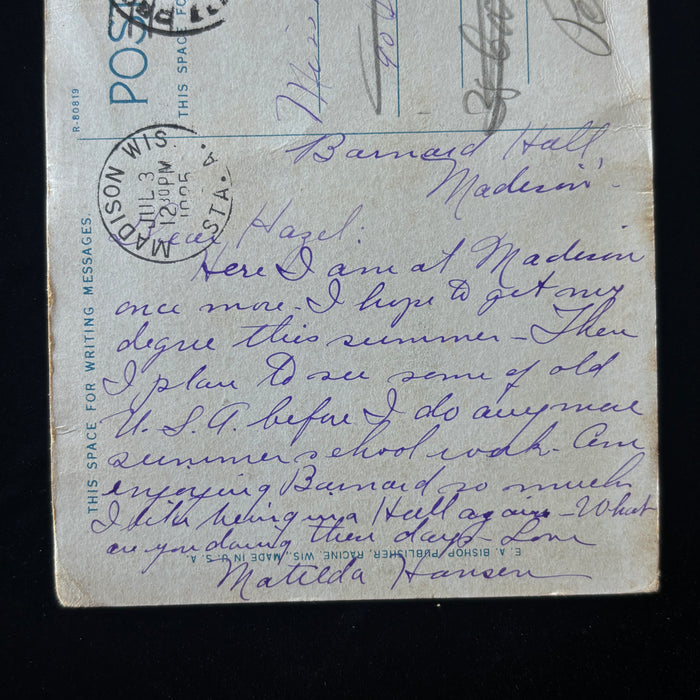 R-80819
POS
THIS SPACE FO
Miss
90
MADISON WIS.
STA. A.
JUL 3
12 30 PM
Barnard Hall,
Madison.
Dear Hazel:
Here I am at Madison
once more - I hope to get my
degree this summer - Then
I plan to see some of old
U. S. A. before I do any more
summer school work. Am
enjoying Barnard so much
I like being in a Hall again - What
are you doing these days - Love
Matilda Hansen
THIS SPACE FOR WRITING MESSAGES.
E. A. BISHOP, PUBLISHER, RACINE, WIS., MADE IN U. S. A.